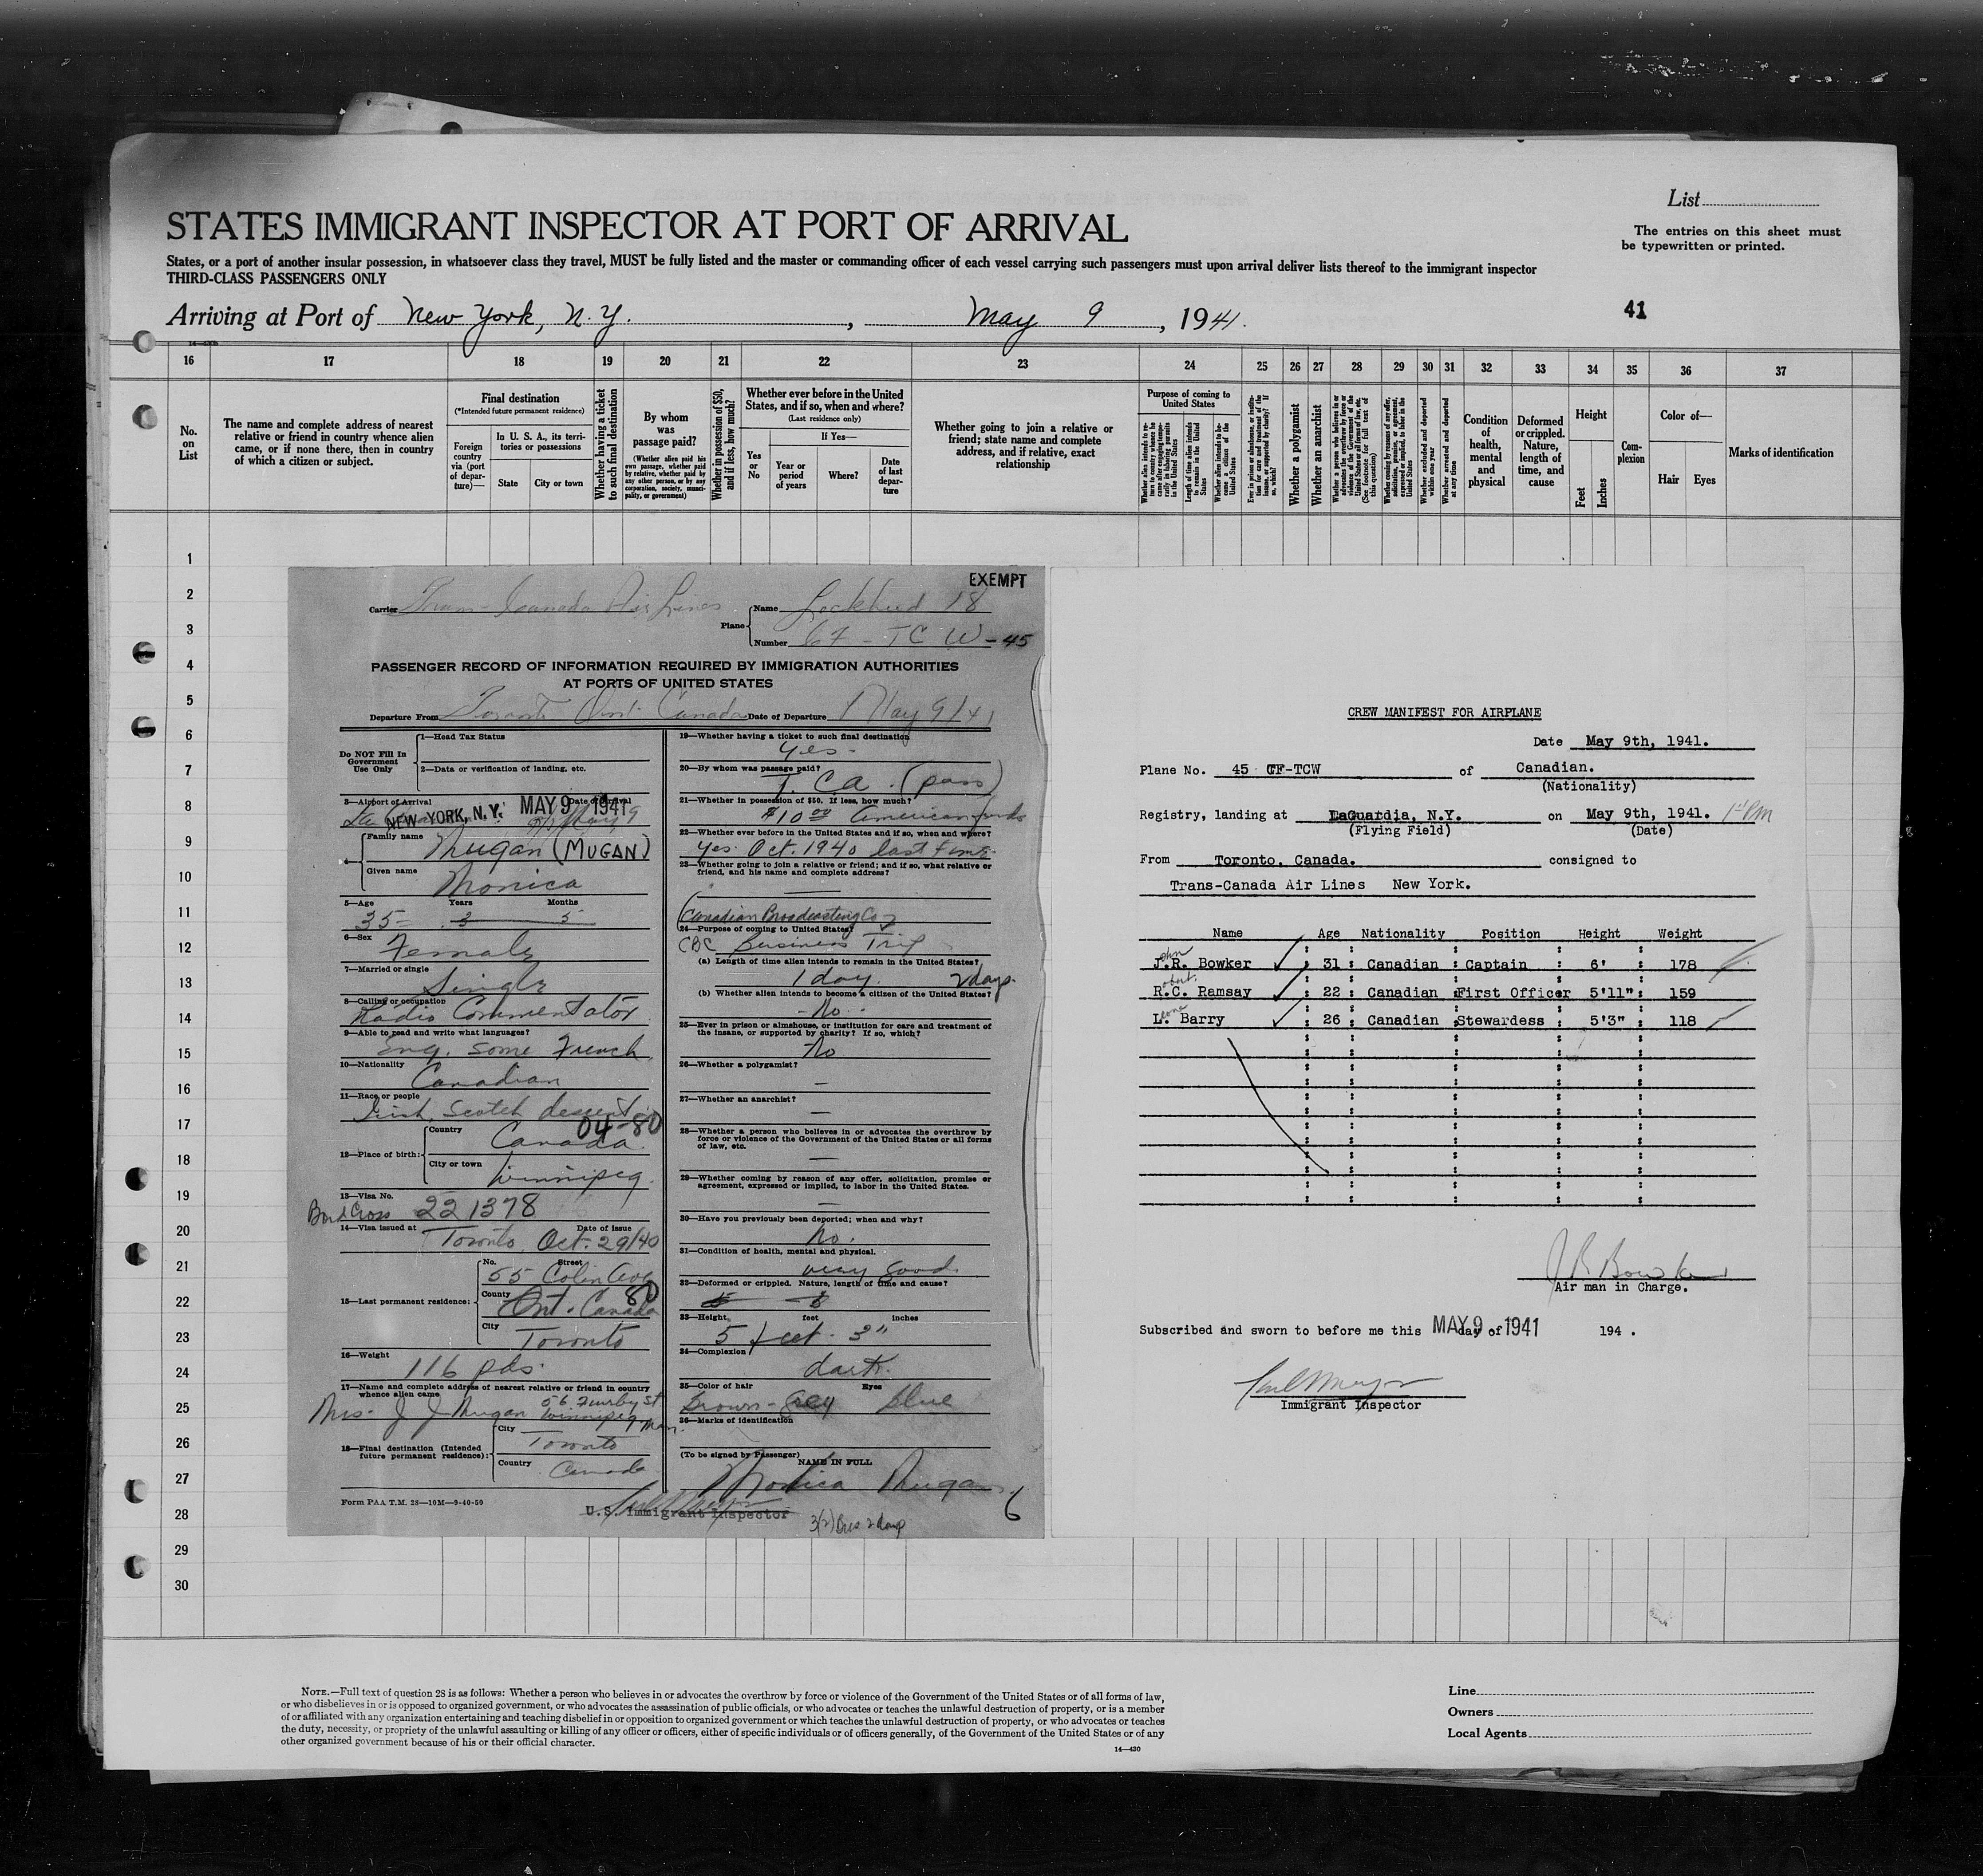 List
The entries on this sheet must
be typewritten or printed.
STATES IMMIGRANT INSPECTOR AT PORT OF ARRIVAL
States, or a port of another insular possession, in whatsoever class they travel, MUST be fully listed and the master or commanding officer of each vessel carrying such passengers must upon arrival deliver lists thereof to the immigrant inspector
THIRD-CLASS PASSENGERS ONLY
Arriving at Port of New York, N.Y. , May 9 , 1941.
41
16 17 18 19 20 21 22 23 24 25 26 27 28 29 30 31 32 33 34 35 36 37
No.
on
List
The name and complete address of nearest
relative or friend in country whence alien
came, or if none there, then in country
of which a citizen or subject.
Final destination
(*Intended future permanent residence)
Foreign
country
via (port
of depar-
ture)—
In U. S. A., its terri-
tories or possessions
State
City or town
Whether having a ticket
to such final destination
By whom
was
passage paid?
(Whether alien paid his
own passage, whether paid
by relative, whether paid by
any other person, or by any
corporation, society, munici-
pality, or government)
Whether in possession of $50,
and if less, how much?
Whether ever before in the United
States, and if so, when and where?
(Last residence only)
Yes
or
No
If Yes—
Year or
period
of years
Where?
Date
of last
depar-
ture
Whether going to join a relative or
friend; state name and complete
address, and if relative, exact
relationship
Purpose of coming to
United States
Length of time alien intends
to remain in the United
States
Whether alien intends to be-
come a citizen of the
United States
Whether a polygamist
Whether an anarchist
Whether excluded and deported
within one year
Whether arrested and deported
at any time
Condition
of
health,
mental
and
physical
Deformed
or crippled.
Nature,
length of
time, and
cause
Height
Feet
Inches
Com-
plexion
Color of—
Hair
Eyes
Marks of identification
1
2
3
4
5
6
7
8
9
10
11
12
13
14
15
16
17
18
19
20
21
22
23
24
25
26
27
28
29
30
EXEMPT
Carrier Trans-Canada Air Lines
Plane
Name Lockheed 18
Number CF-TCW-45
PASSENGER RECORD OF INFORMATION REQUIRED BY IMMIGRATION AUTHORITIES
AT PORTS OF UNITED STATES
Departure From Toronto Ont. Canada Date of Departure May 9/41
Do NOT Fill In
Government
Use Only
1—Head Tax Status
2—Data or verification of landing, etc.
3—Airport of Arrival Date of Arrival
NEW YORK, N.Y. MAY 9 1941
4—
Family name Mugan (MUGAN)
Given name Monica
5—Age Years Months
35
6—Sex
Female
7—Married or single
Single
8—Calling or occupation
Radio Commentator
9—Able to read and write what languages?
Eng. some French
10—Nationality
Canadian
11—Race or people
Irish, Scotch descent
04-80
12—Place of birth:
Country Canada
City or town Winnipeg
13—Visa No.
Bord Cross 221378
14—Visa issued at Date of issue
Toronto Oct. 29/40
15—Last permanent residence:
No. Street
55 Colin Ave
County
Ont. Canada 80
City Toronto
16—Weight
116 pds.
17—Name and complete address of nearest relative or friend in country
whence alien came
Mrs. J J Mugan 56 Furby St
Winnipeg Man.
18—Final destination (Intended
future permanent residence):
City Toronto
Country Canada
Form PAA T.M. 28—10M—9-40-50
19—Whether having a ticket to such final destination
Yes.
20—By whom was passage paid?
T.C.A. (pass)
21—Whether in possession of $50. If less, how much?
$10.00 American funds
22—Whether ever before in the United States and if so, when and where?
Yes. Oct. 1940 last time.
23—Whether going to join a relative or friend; and if so, what relative or
friend, and his name and complete address?
(Canadian Broadcasting Co)
24—Purpose of coming to United States?
CBC Business Trip
(a) Length of time alien intends to remain in the United States?
1 day. 2 days.
(b) Whether alien intends to become a citizen of the United States?
No.
25—Ever in prison or almshouse, or institution for care and treatment of
the insane, or supported by charity? If so, which?
No
26—Whether a polygamist?
—
27—Whether an anarchist?
—
28—Whether a person who believes in or advocates the overthrow by
force or violence of the Government of the United States or all forms
of law, etc.
—
29—Whether coming by reason of any offer, solicitation, promise or
agreement, expressed or implied, to labor in the United States.
—
30—Have you previously been deported; when and why?
No.
31—Condition of health, mental and physical.
very good.
32—Deformed or crippled. Nature, length of time and cause?
33—Height, feet inches
5 feet - 3"
34—Complexion
dark.
35—Color of hair Eyes
Brown-Grey blue
36—Marks of identification
(To be signed by Passenger) NAME IN FULL
Monica Mugan
6
U.S. Immigrant Inspector
3(2) Bus 2 days
CREW MANIFEST FOR AIRPLANE
Date May 9th, 1941.
Plane No. 45 CF-TCW of Canadian.
(Nationality)
Registry, landing at LaGuardia, N.Y. on May 9th, 1941.
(Flying Field) (Date)
From Toronto, Canada. consigned to
Trans-Canada Air Lines New York.
Name Age Nationality Position Height Weight
John
J.R. Bowker : 31 : Canadian : Captain : 6' : 178
obert.
R.C. Ramsay : 22 : Canadian :First Officer 5'11": 159
L. Barry : 26 : Canadian :Stewardess : 5'3" : 118
J R Bowker
Air man in Charge.
Subscribed and sworn to before me this MAY 9 day of 1941 194 .
Immigrant Inspector
NOTE.—Full text of question 28 is as follows: Whether a person who believes in or advocates the overthrow by force or violence of the Government of the United States or of all forms of law,
or who disbelieves in or is opposed to organized government, or who advocates the assassination of public officials, or who advocates or teaches the unlawful destruction of property, or is a member
of or affiliated with any organization entertaining and teaching disbelief in or opposition to organized government or which teaches the unlawful destruction of property, or who advocates or teaches
the duty, necessity, or propriety of the unlawful assaulting or killing of any officer or officers, either of specific individuals or of officers generally, of the Government of the United States or of any
other organized government because of his or their official character.
14—430
Line
Owners
Local Agents